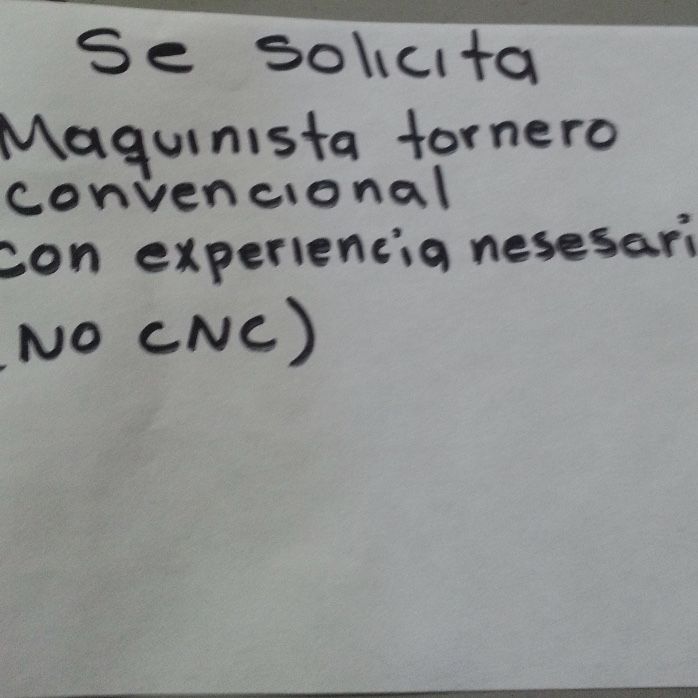 Se solicita
Maquinista tornero
convencional
con experiencia nesesari
(NO CNC)